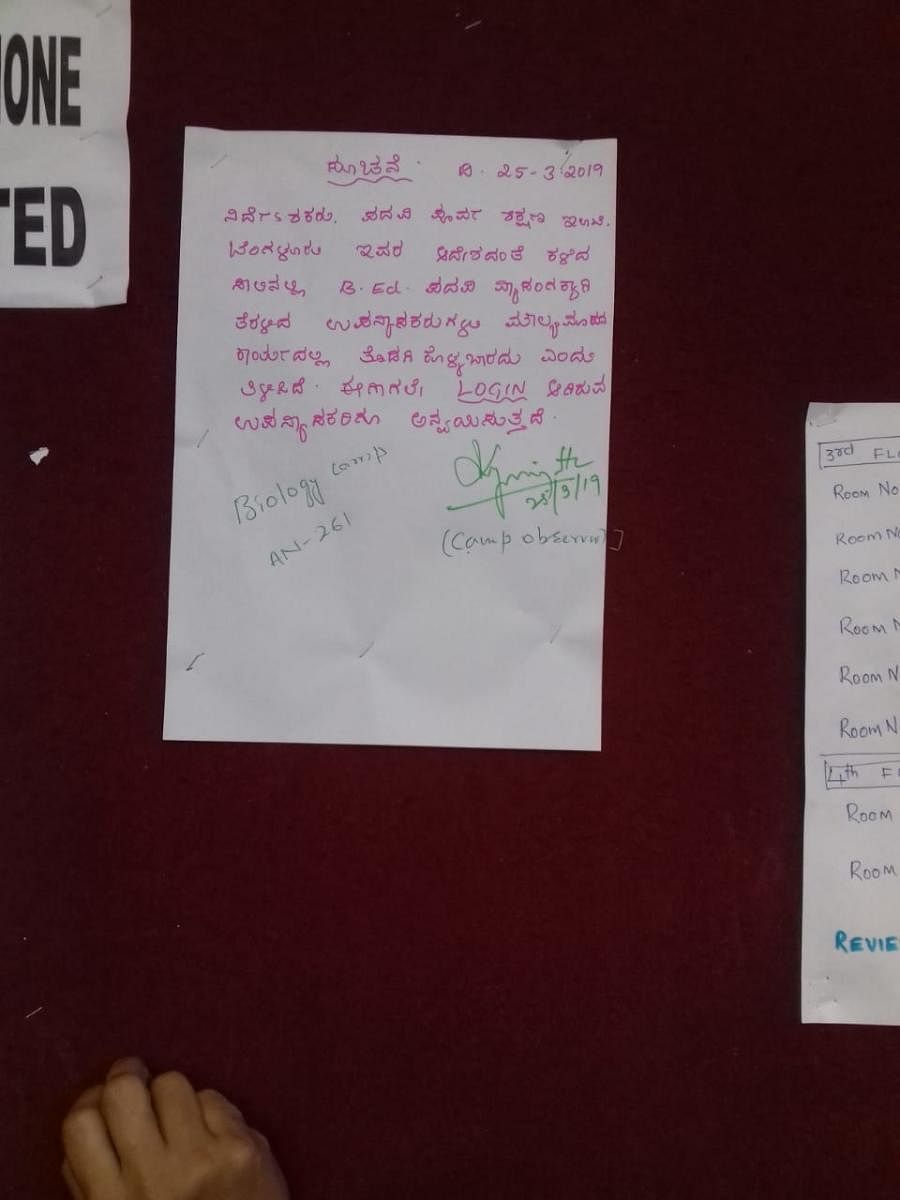 ONE
TED
ಸೂಚನೆ. ದಿ. 25-3-2019
ನಿರ್ದೇಶಕರು, ಪದವಿ ಪೂರ್ವ ಶಿಕ್ಷಣ ಇಲಾಖೆ.
ಬೆಂಗಳೂರು ಇವರ ಆದೇಶದಂತೆ ಕಳೆದ
ಸಾಲಿನಲ್ಲಿ B.Ed. ಪದವಿ ವ್ಯಾಸಂಗಕ್ಕಾಗಿ
ತೆರಳಿದ ಉಪನ್ಯಾಸಕರುಗಳು ಮೌಲ್ಯಮಾಪನ
ಕಾರ್ಯದಲ್ಲಿ ತೊಡಗಿ ಕೊಳ್ಳಬಾರದು ಎಂದು
ತಿಳಿಸಿದೆ. ಈಗಾಗಲೇ LOGIN ಆಗಿರುವ
ಉಪನ್ಯಾಸಕರಿಗೂ ಅನ್ವಯಿಸುತ್ತದೆ.
Biology Camp
AN-261
25/3/19
(Camp observer)
3rd FL
Room No
Room No
Room N
Room N
Room N
Room N
4th F
Room
Room
REVIE